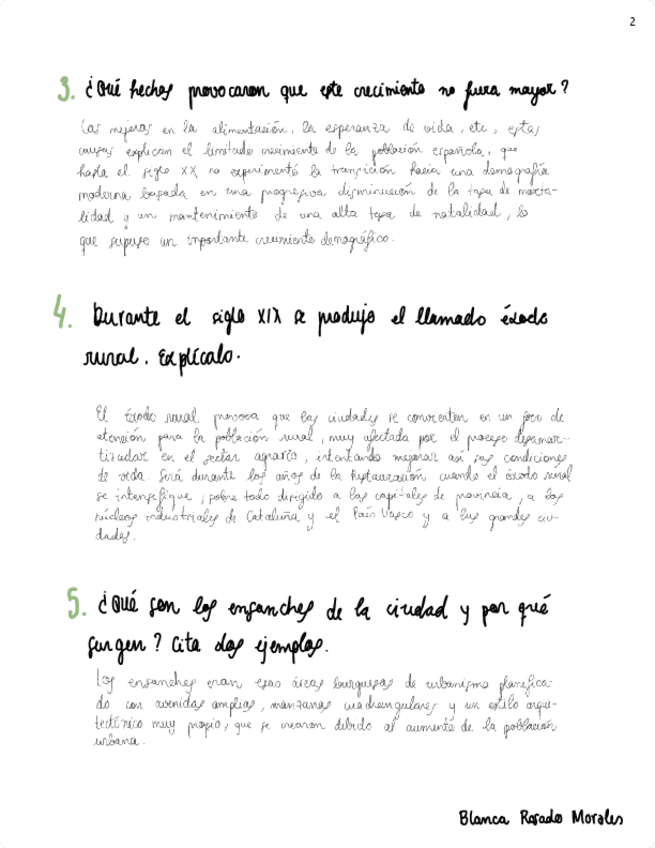 2
3. ¿Qué hechos provocaron que este crecimiento no fuera mayor?
Las mejoras en la alimentación, la esperanza de vida, etc, estas
causas explican el limitado crecimiento de la población española, que
hasta el siglo XX no experimentó la transición hacia una demografía
moderna basada en una progresiva disminución de la tasa de morta-
lidad y un mantenimiento de una alta tasa de natalidad, lo
que supuso un importante crecimiento demográfico.
4. Durante el siglo XIX se produjo el llamado éxodo
rural. Explícalo.
El éxodo rural provoca que las ciudades se convierten en un foco de
atención para la población rural, muy afectada por el proceso desamor-
tizador en el sector agrario, intentando mejorar así sus condiciones
de vida. Será durante los años de la Restauración cuando el éxodo rural
se intensifique, sobre todo dirigido a las capitales de provincia, a los
núcleos industriales de Cataluña y el País Vasco y a las grandes ciu-
dades.
5. ¿Qué son los ensanches de la ciudad y por qué
surgen? Cita dos ejemplos.
Los ensanches eran esas áreas burguesas de urbanismo planifica-
do con avenidas amplias, manzanas cuadrangulares y un estilo arqui-
tectónico muy propio, que se crearon debido al aumento de la población
urbana.
Blanca Rosado Morales